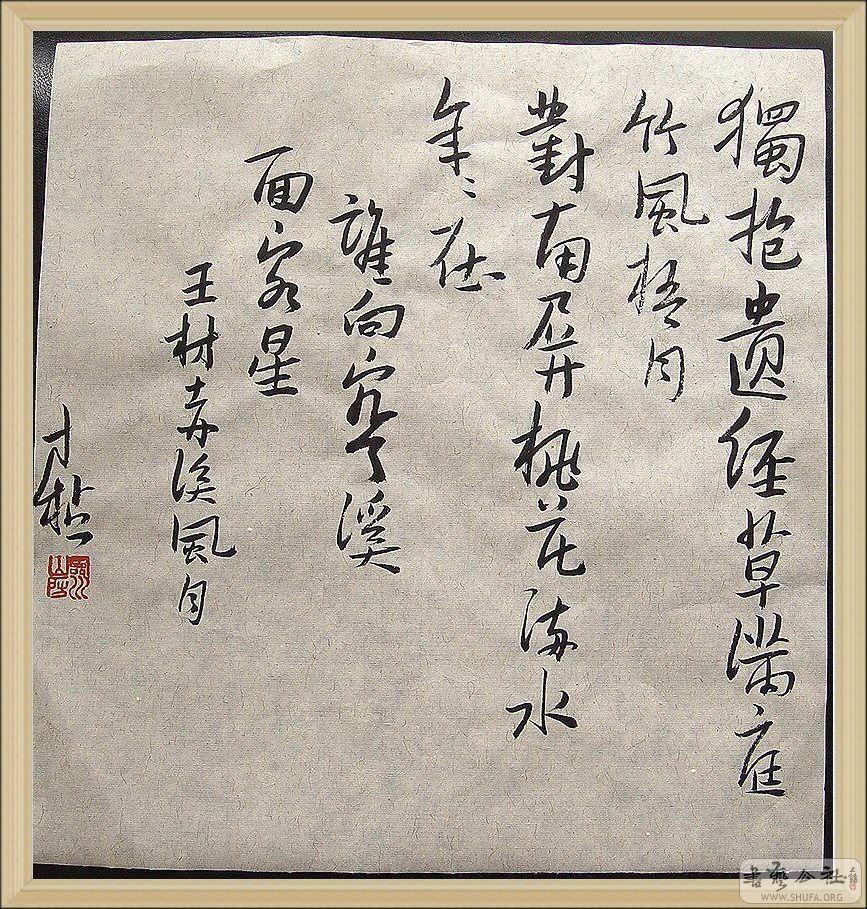 獨抱遺經草滿庭
竹風梧月
對南屏桃花流水
年々在
誰向寒溪
面客星
王村溪風月
書藝公社
WWW.SHUFA.ORG